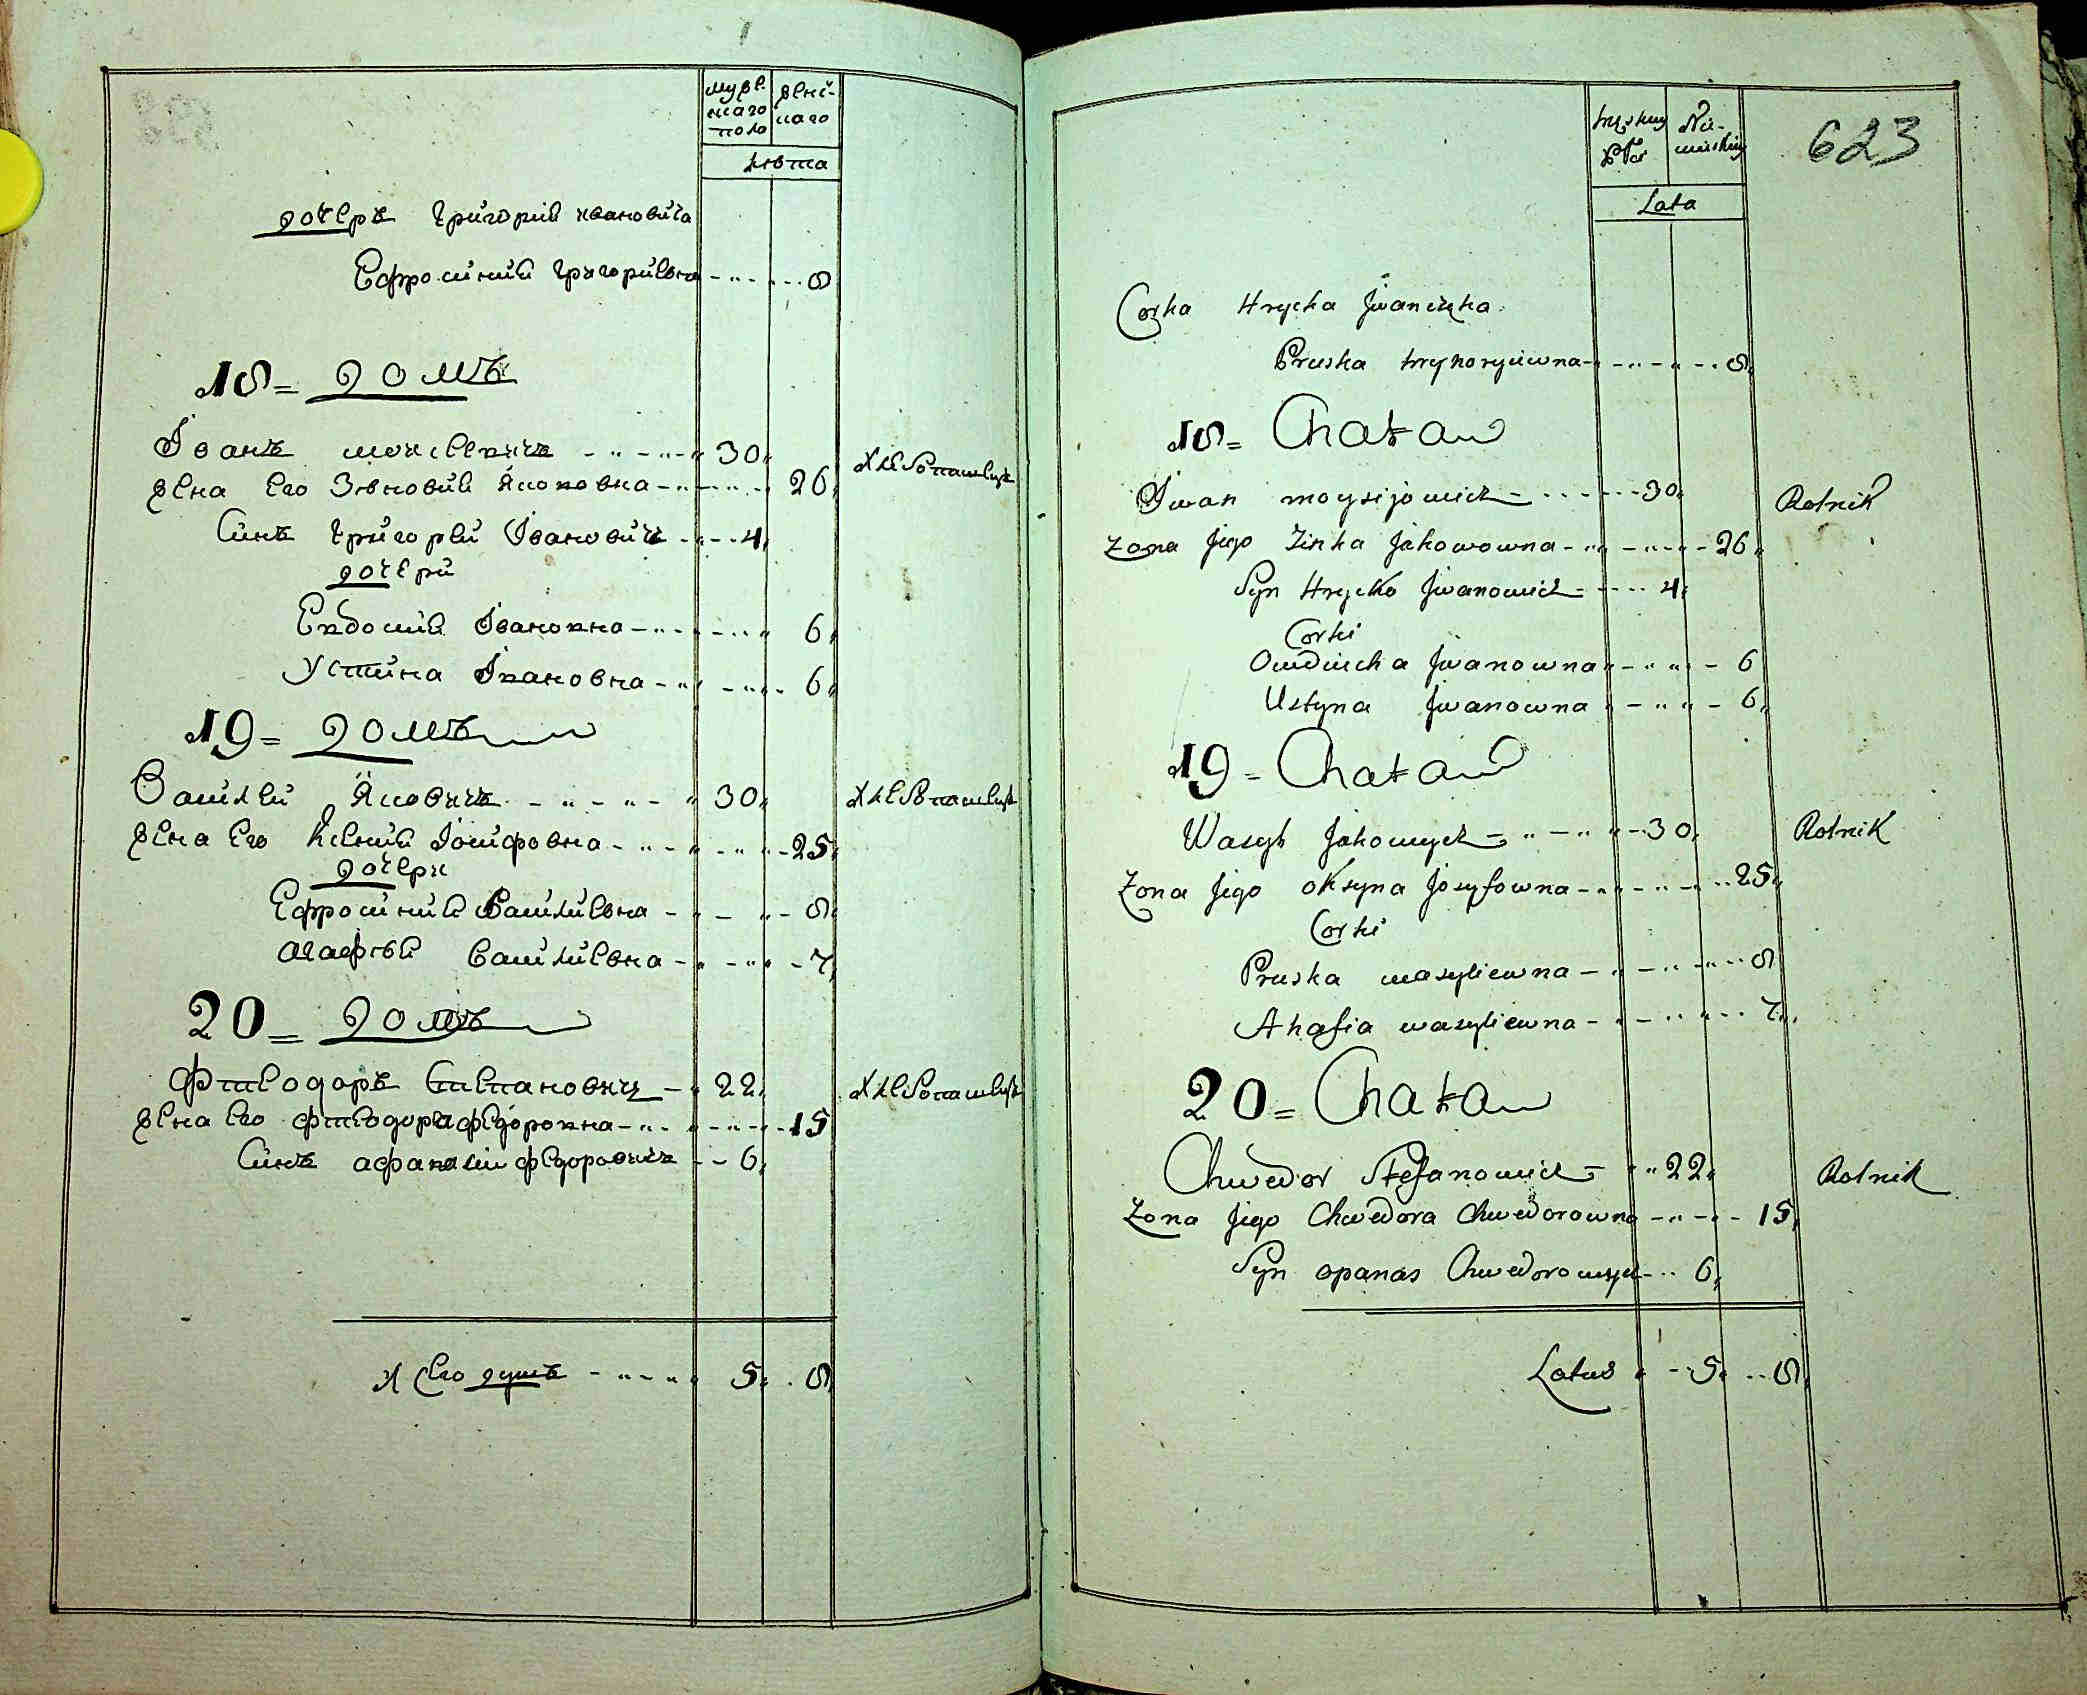 мужескаго
поло
женскаго
лѣта
дочеръ Григорий Ивановича
Ефросиний Григориевна - - - 8
18 = домъ
Іванъ Моисеевичъ - - - 30 Хлебопашецъ
жена Его Зѣновий Якововна - - - 26
Синъ Григорей Івановичъ - - - 4
дочери
Евдосий Івановна - - - 6
Устина Івановна - - - 6
19 = домъ
Василей Яковичъ - - - 30 Хлебопашецъ
жена Его Ксений Іосифовна - - - 25
дочери
Ефросиний Василиевна - - - 8
Агафий Василиевна - - - 7
20 = домъ
Фтеодоръ Степановичъ - 22 Хлебопашецъ
жена Его Фтеодора Федоровна - - - 15
Синъ Афанасии Федоровичъ - - 6
Всего душъ - - - 5 8
623
Lata
Corka Hrycka Jwaniczka
Pruska Hryhoryiewna - - - 8
18 = Chata
Jwan Moysijowicz - - - 30 Rolnik
Zona Jego Zinka Jakowowna - - - 26
Syn Hrycko Jwanowicz - - - 4
Corki
Owdiucha Jwanowna - - - 6
Ustyna Jwanowna - - - 6
19 = Chata
Wasyl Jakowycz - - - 30 Rolnik
Zona Jego Oksyna Josyfowna - - - 25
Corki
Pruska Wasyliewna - - - 8
Ahafia Wasyliewna - - - 7
20 = Chata
Chwedor Stefanowicz - 22 Rolnik
Zona Jego Chwedora Chwedorowna - - - 15
Syn Opanas Chwedorowycz - - 6
Latus - - 5 - - 8